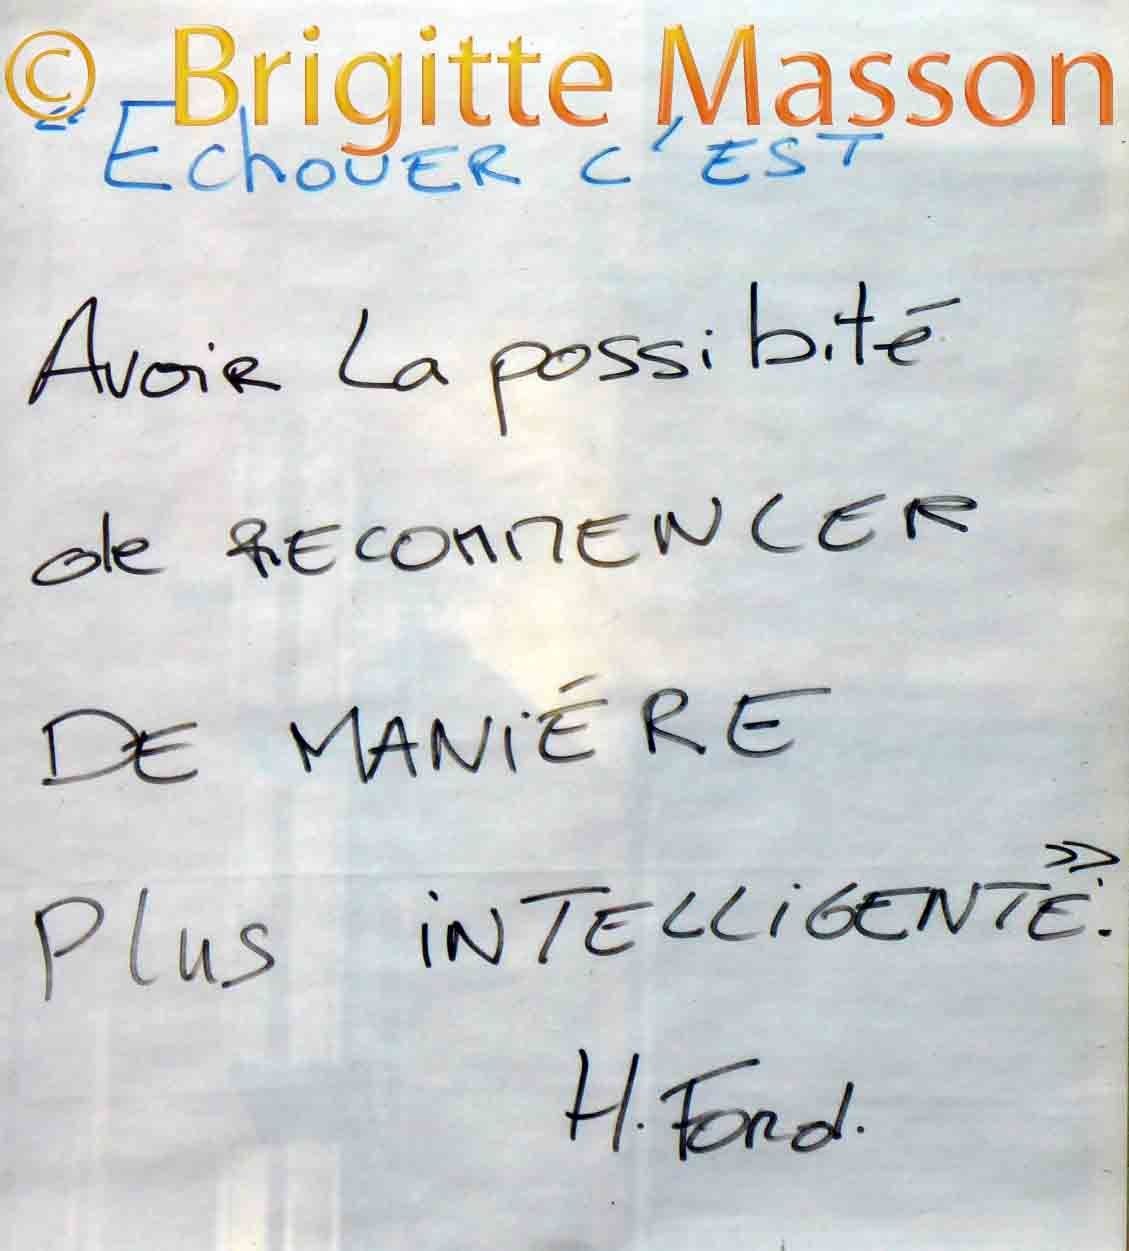 © Brigitte Masson
« Echouer c'EST
Avoir La possibité
de RECOMMENCER
DE MANIÉRE
Plus iNTELLiGENTE. »
H. Ford.